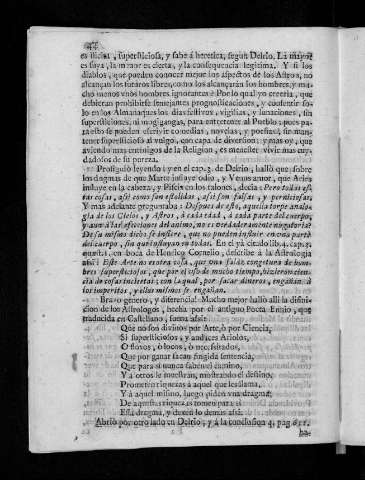 44
es ilicita, supersticiosa, y sabe à heretica, segun Delrio. La mayor
es suya, la menor es cierta, y la consequencia legitima. Y si los
diablos, que pueden conocer mejor los aspectos de los Astros, no
alcançan los futuros libres, como los alcançaràn los hombres, y mu-
cho menos unos hombres ignorantes? Por lo qual yo creeria, que
debieran prohibirse semejantes prognosticaciones, y consentir so-
lo en los Almanaques los dias festivos, vigilias, y lunaciones, sin
supersticiones, ni mogigangas, para entretener al Pueblo; pues pa-
ra esto se pueden escrivir comedias, novelas, y poesias, sin man-
tener supersticioso al vulgo, con capa de diversion; y mas oy, que
aviendo mas enemigos de la Religion, es menester vivir mas cuy-
dadosos de su pureza.
Prosiguiò leyendo; y en el cap. 3. de Delrio, hallò que, sobre
los dogmas de que Marte influye odio, y Venus amor, que Aries
influye en la cabeza, y Piscis en los talones, decia: Pero todas es-
tas cosas, assi como son estolidas, assi son falsas, y perniciosas;
Y mas adelante preguntaba: Despues de esto, aquella torpe analo-
gia de los Cielos, y Astros, à cada edad, à cada parte del cuerpo,
y aun à las afecciones del animo, no es verdaderamente nugatoria?
De su mismo dicho se infiere, que no pueden influir en una parte
del cuerpo, sin que influyan en todas. En el yà citado lib. 4. cap. 3.
quæst. 1. en boca de Henrico Cornelio, describe à la Astrologia
assi: Este Arte no es otra cosa, que una falàz congetura de hom-
bres supersticiosos, que por el uso de mucho tiempo, hizieron cien-
cia de cosas inciertas; con la qual, por sacar dineros, engañan à
los imperitos, y ellos mismos se engañan.
Bravo genero, y diferencia! Mucho mejor hallo alli la difini-
cion de los Astrologos, hecha por el antiguo Poeta Ennio, que
traducida en Castellano, suena assi:
Que no son divinos por Arte, ò por Ciencia,
Si supersticiosos, y audaces Ariolos,
O floxos, ò locos, ò necessitados,
Que por ganar sacan fingida sentencia,
Que para sì nunca saben el camino,
Y à otros le muestran, mostrando el destino,
Prometen riquezas à aquel que les llama,
Y à aquel mismo, luego piden una dragma;
De aquestas riquezas tomen para sì
Essa dragma, y dexen lo demàs assi.
Abriò por otro lado en Delrio, y à la conclusion 4. pag. 611.
ha-